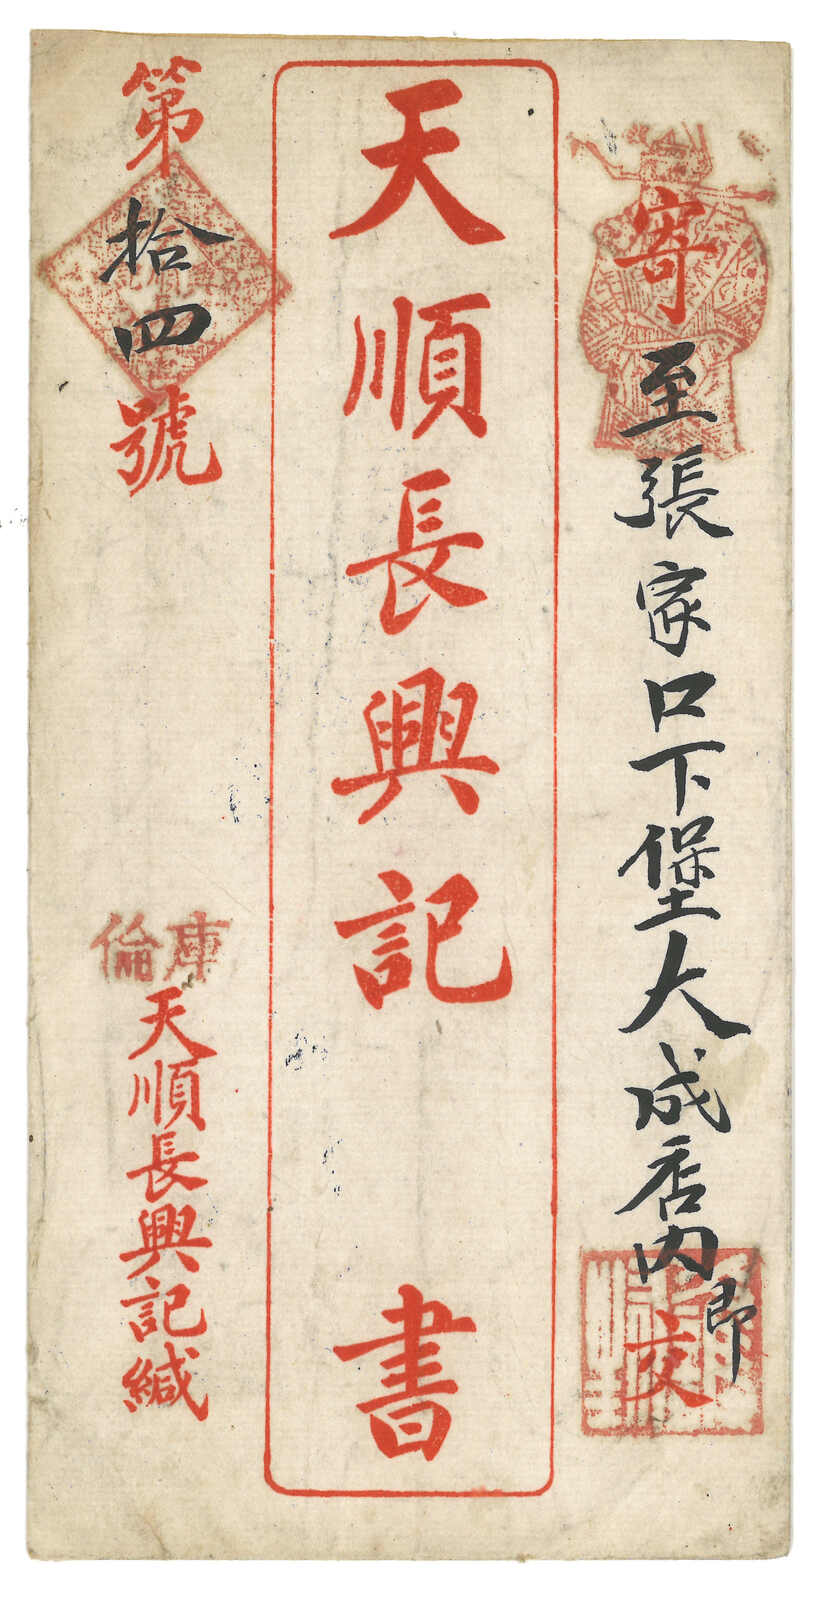 寄至張家口下堡大成店內即交
天順長興記書
第拾四號
庫倫
天順長興記緘